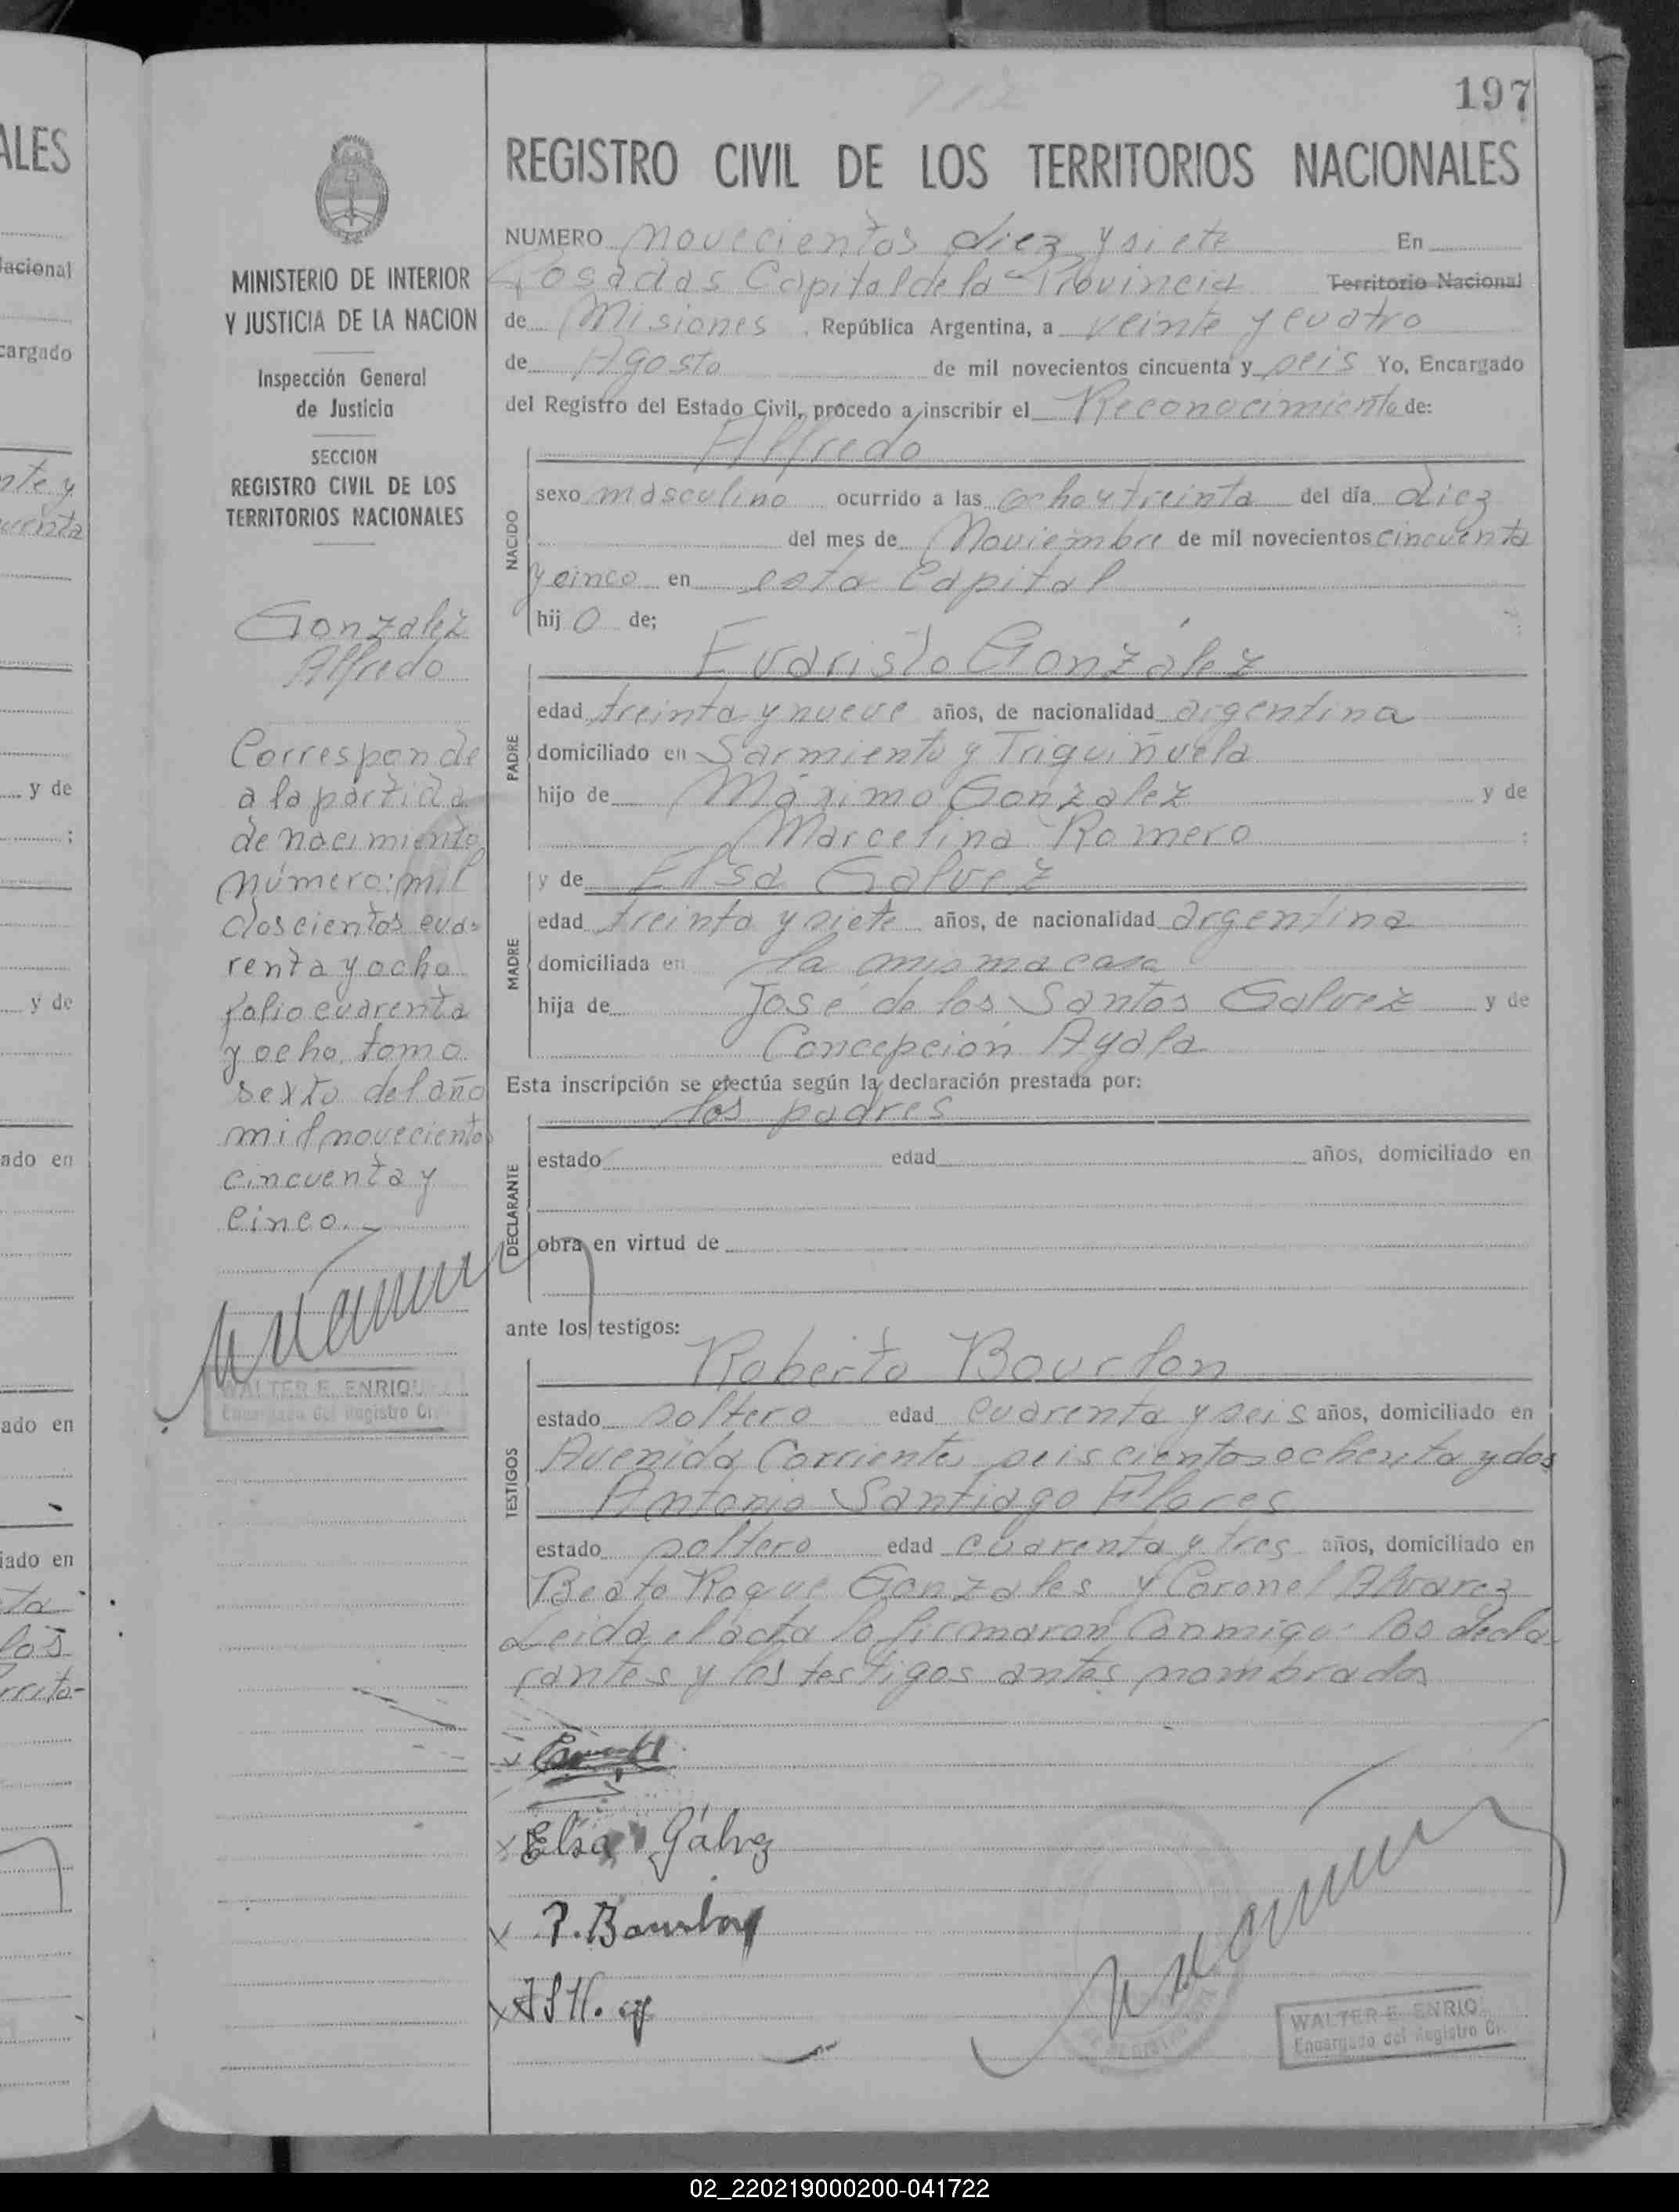 197
REGISTRO CIVIL DE LOS TERRITORIOS NACIONALES
MINISTERIO DE INTERIOR
Y JUSTICIA DE LA NACION
Inspección General
de Justicia
SECCION
REGISTRO CIVIL DE LOS
TERRITORIOS NACIONALES
Gonzalez
Alfredo
Corresponde
a la partida
de nacimiento
número: mil
doscientos cua-
renta y ocho
folio cuarenta
y ocho, tomo
sexto del año
mil novecientos
cincuenta y
cinco.-
WALTER E. ENRIQU
Encargado del Registro Ci
NUMERO novecientos diez y siete En
Posadas Capital de la Provincia Territorio Nacional
de Misiones. República Argentina, a veinte y cuatro
de Agosto de mil novecientos cincuenta y seis Yo, Encargado
del Registro del Estado Civil, procedo a inscribir el Reconocimiento de:
Alfredo
NACIDO
sexo masculino ocurrido a las ocho y treinta del día diez
del mes de Noviembre de mil novecientos cincuenta
y cinco en esta Capital
hijo de;
Evaristo González
PADRE
edad treinta y nueve años, de nacionalidad argentina
domiciliado en Sarmiento y Triquiñuela
hijo de Máximo Gonzalez y de
Marcelina Romero
y de Elsa Galvez
MADRE
edad treinta y siete años, de nacionalidad argentina
domiciliada en la misma casa
hija de José de los Santos Galvez y de
Concepción Ayala
Esta inscripción se efectúa según la declaración prestada por:
los padres
DECLARANTE
estado edad años, domiciliado en
obra en virtud de
ante los testigos:
Roberto Bourlon
TESTIGOS
estado soltero edad cuarenta y seis años, domiciliado en
Avenida Corrientes seiscientos ochenta y dos
Antonio Santiago Flores
estado soltero edad cuarenta y tres años, domiciliado en
Beato Roque Gonzales y Coronel Alvarez
Leida el acta la firmaron conmigo los decla-
rantes y los testigos antes nombrados
Elsa Gálvez
WALTER E. ENRIQ
Encargado del Registro Ci
ALES
Nacional
cargado
nte y
cuenta
y de
y de
ado en
ado en
iado en
ta
los
rrito-
02_220219000200-041722